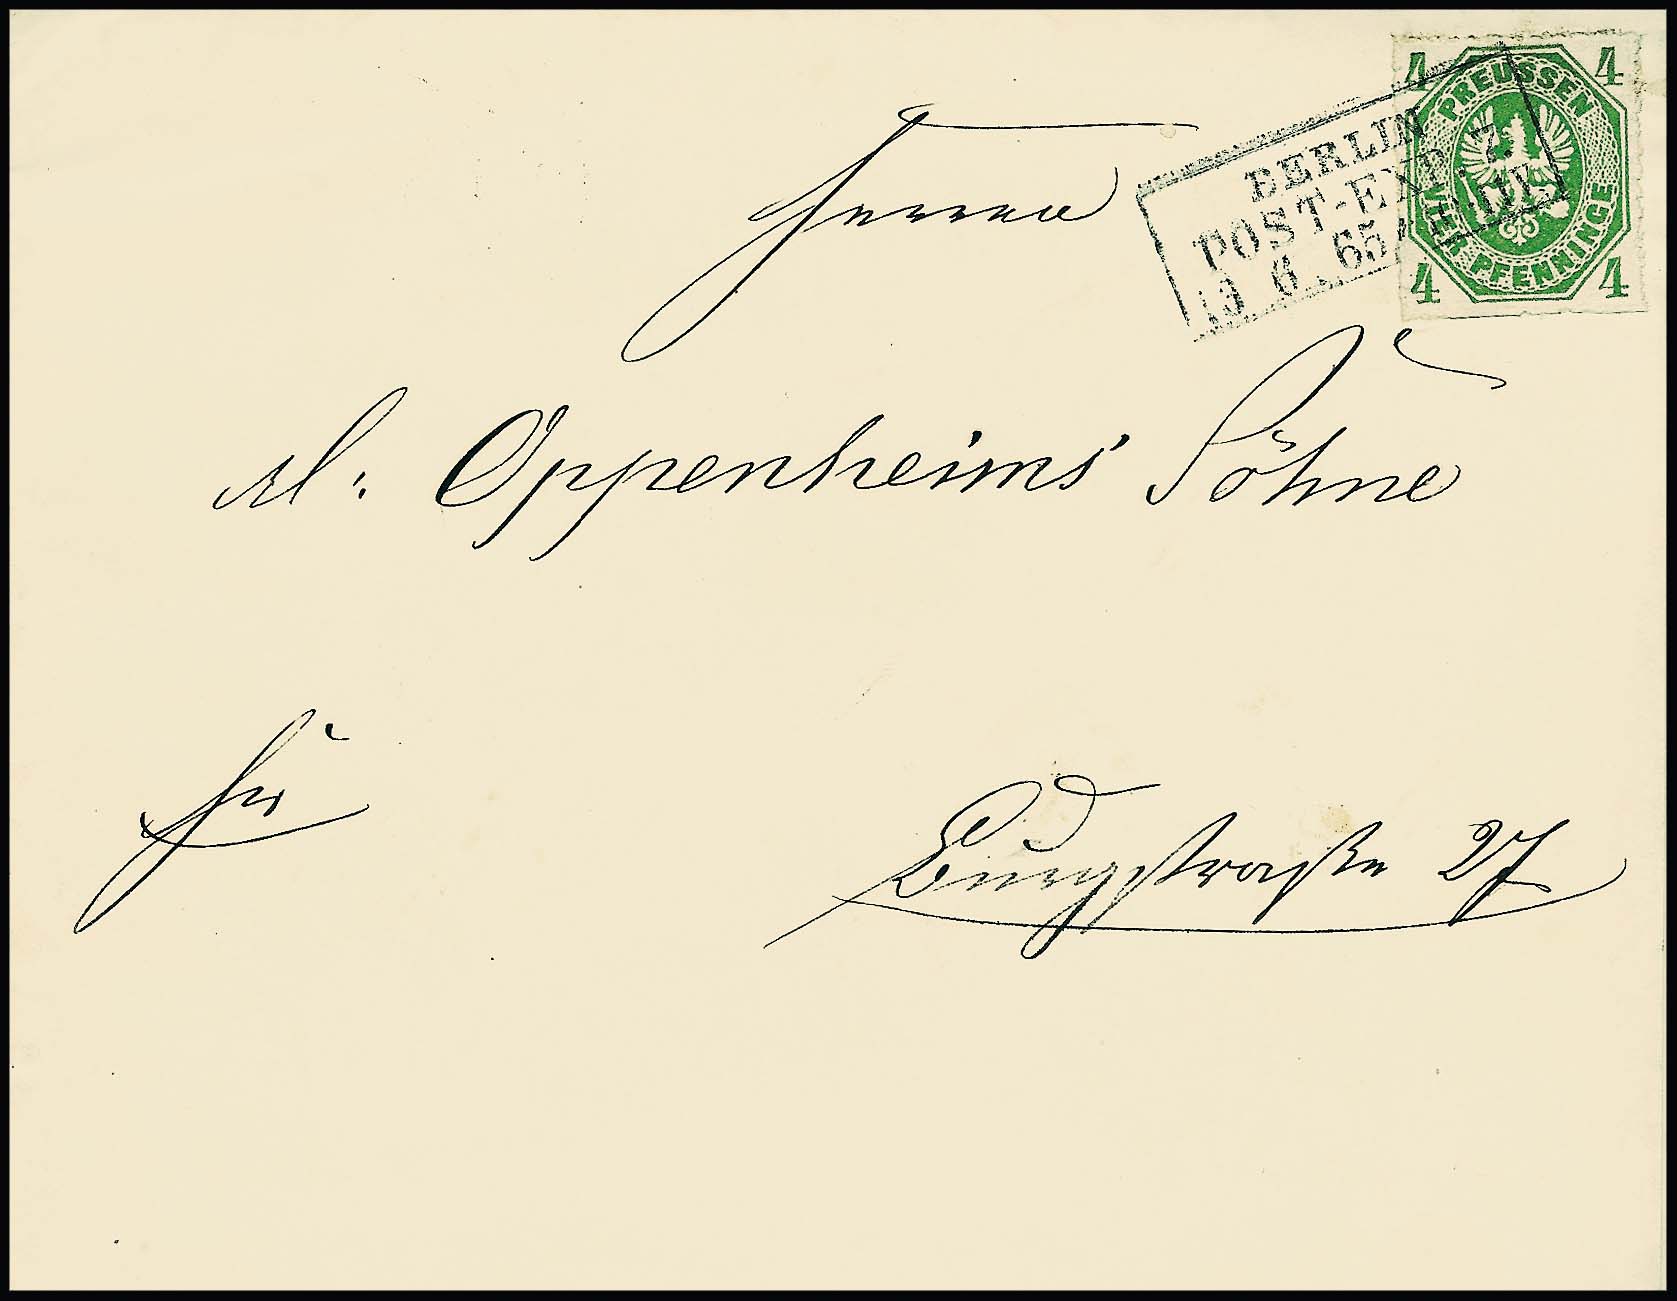 4 4
PREUSSEN
VIER PFENNINGE
4 4
BERLIN
POST-EXP. 7.
13 6 65
Herren
M. Oppenheims' Söhne
hier
Burgstraße 27